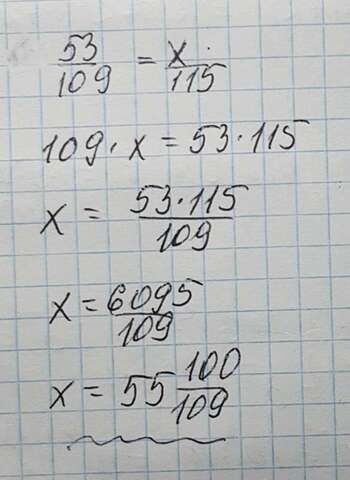 53/109 = x/115
109 · x = 53 · 115
x = 53·115/109
x = 6095/109
x = 55 100/109